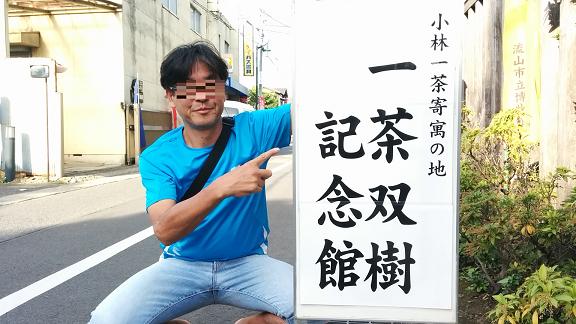 小林一茶寄寓の地
一茶双樹
記念館
流山市立博